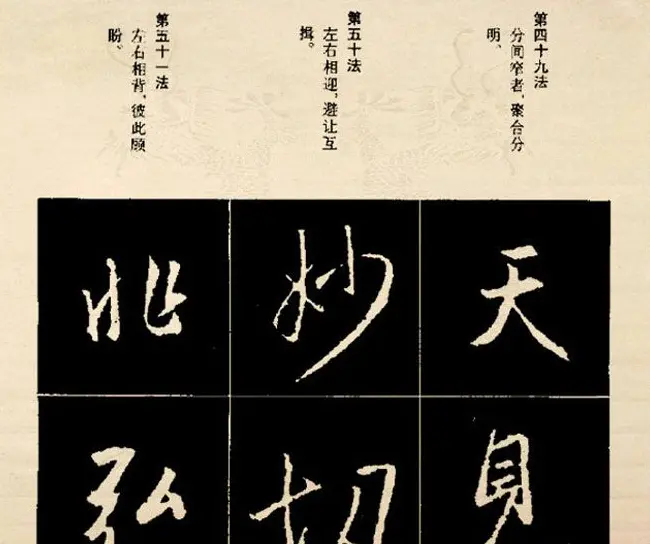 第四十九法
分间窄者，聚合分
明。
第五十法
左右相迎，避让互
揖。
第五十一法
左右相背，彼此顾
盼。
天
妙
切
弘